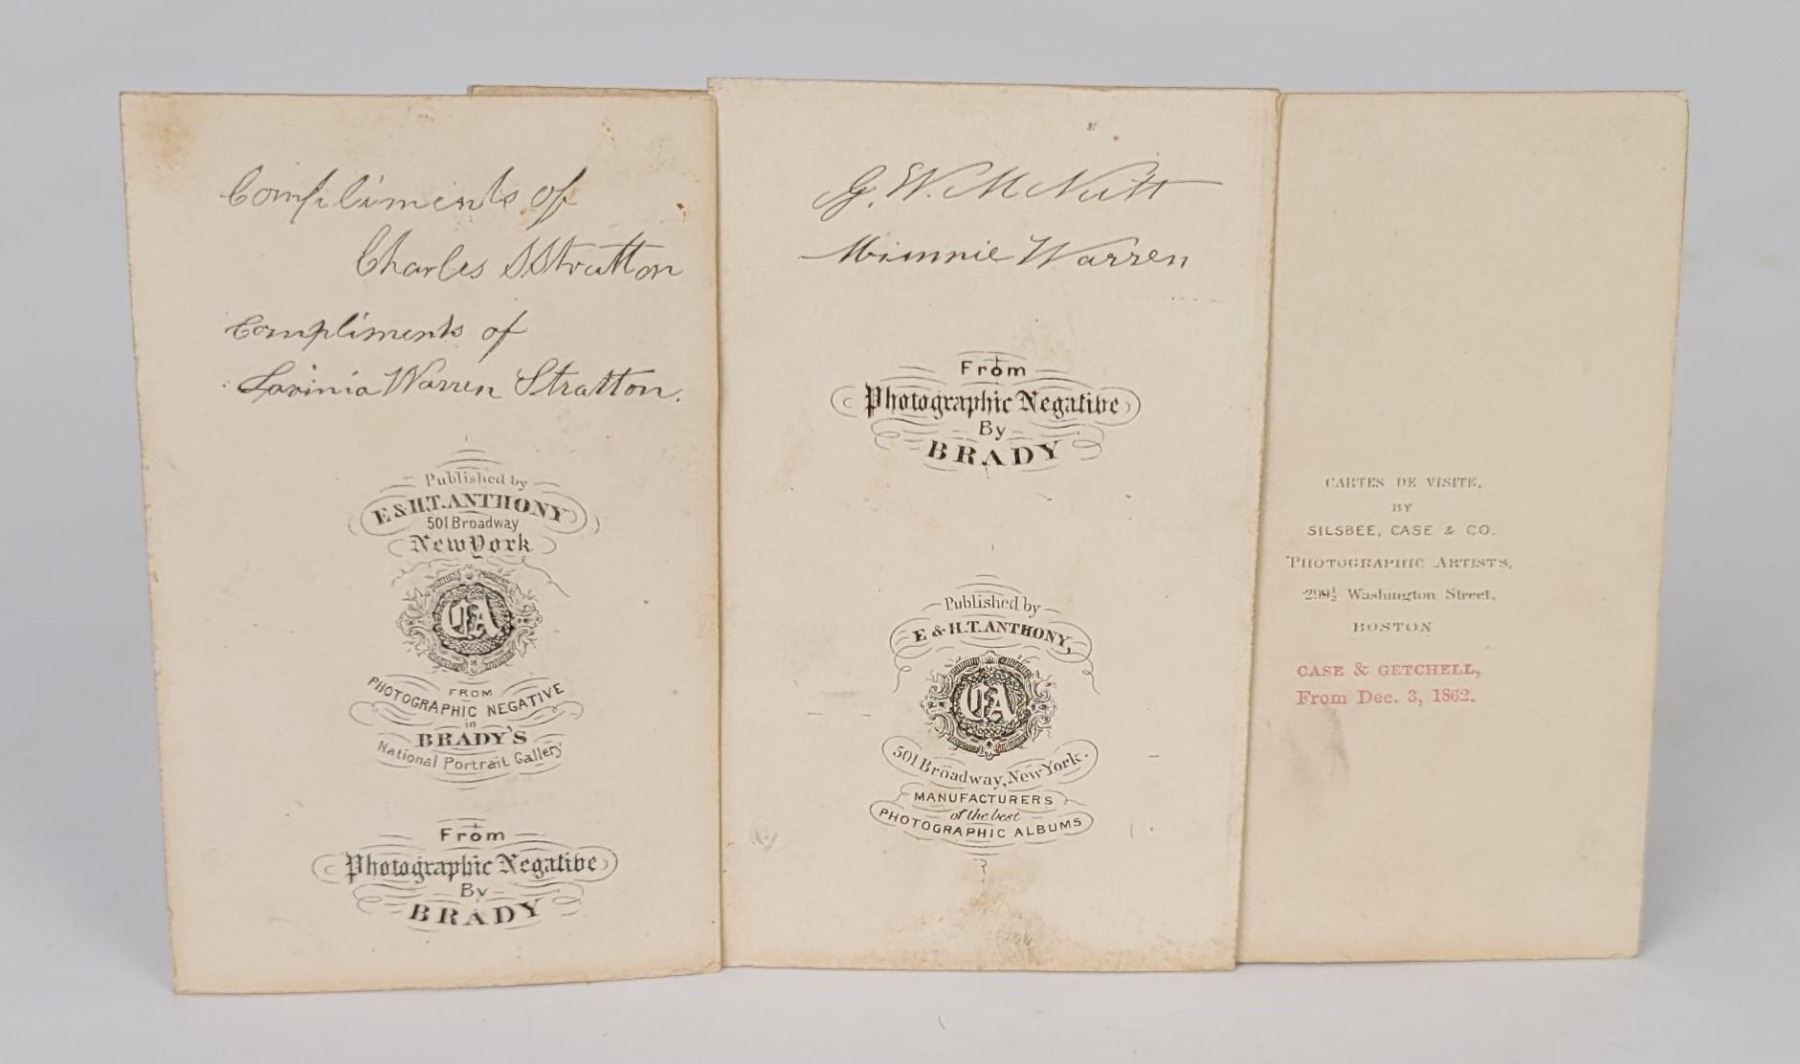 Compliments of
Charles S Stratton
Compliments of
Lavinia Warren Stratton.
Published by
E & H.T. ANTHONY
501 Broadway
New York
CA
FROM
PHOTOGRAPHIC NEGATIVE
in
BRADY'S
National Portrait Gallery
From
Photographic Negative
By
BRADY
G. W. McNutt
Minnie Warren
From
Photographic Negative
By
BRADY
Published by
E & H.T. ANTHONY,
501 Broadway, New York.
MANUFACTURERS
of the best
PHOTOGRAPHIC ALBUMS
CARTES DE VISITE,
BY
SILSBEE, CASE & CO.
PHOTOGRAPHIC ARTISTS,
299½ Washington Street,
BOSTON
CASE & GETCHELL,
From Dec. 3, 1862.